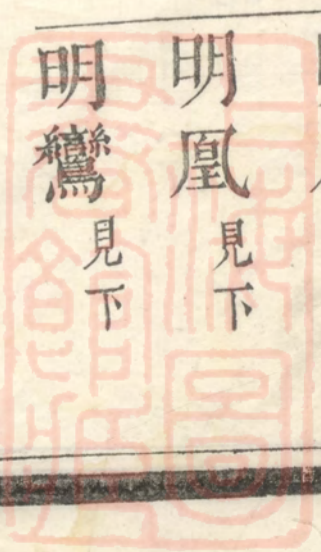 明凰見下
明鸞見下